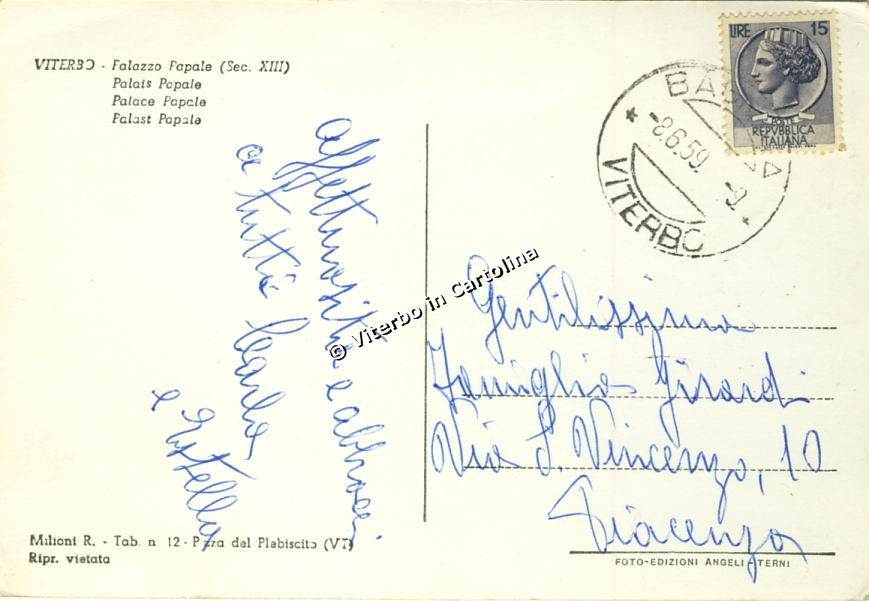 VITERBO - Palazzo Papale (Sec. XIII)
Palais Papale
Palace Papale
Palast Papale
affettuosità e abbracci
a tutti Carla
e Estella
Milioni R. - Tab. n. 12 - P.zza del Plabiscito (VT)
Ripr. vietata
LIRE 15
POSTE
REPVBBLICA
ITALIANA
-8.6.59.
-9.
VITERBO
© Viterbo in Cartolina
Gentilissima
Famiglia Girardi
Via S. Vincenzo, 10
Piacenza
FOTO-EDIZIONI ANGELI - TERNI